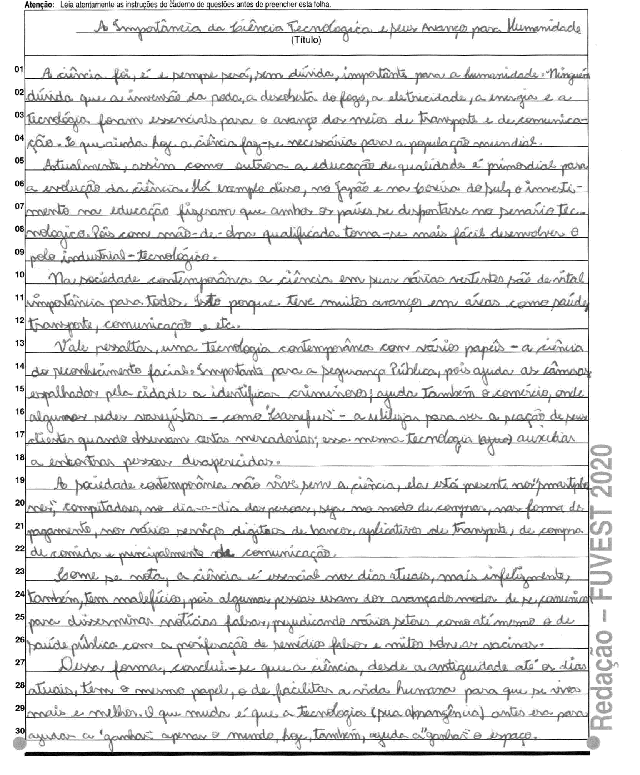 Atenção: Leia atentamente as instruções do caderno de questões antes de preencher esta folha.
A Importância da Ciência Tecnologica e seus Avanço para Humanidade
(Título)
01 A ciência foi, é e sempre será, sem dúvida, importante para a humanidade. Ninguém
02 dúvida que a invensão da roda, a descoberta do fogo, a eletricidade, a energia e a
03 tecnológia foram essenciais para o avanço dos meios de transporte e de comunica-
04 ção. E que ainda hoje a ciência faz-se necessária para a população mundial.
05 Actualmente, assim como outrora a educação de qualidade é primordial para
06 a evolução da ciência. Há exemplo disso, no Japão e na Coreia do Sul, o investi-
07 mento na educação fizeram que ambos os países se despontasse no senário tec-
08 nologico. Pois com mão-de-obra qualificada torna-se mais fácil desenvolver o
09 polo industrial-tecnológico.
10 Na sociedade contemporânea a ciência em suas várias vertentes são de vital
11 importância para todos. Isto porque teve muitos avanços em áreas como saúde,
12 transporte, comunicação e etc.
13 Vale ressaltar, uma tecnologia contemporânea com vários papéis - a ciência
14 do reconhecimento facial. Importante para a segurança Pública, pois ajuda as câmaras
15 espalhadas pela cidade a identificar criminosos; ajuda também o comércio, onde
16 algumas redes varegistas - como "Carrefur" - a utilizam para ver a reação de seus
17 clientes quando observam certas mercadorias; essa mesma tecnologia auxiliar
18 a encontrar pessoas desaparecidas.
19 A sociedade contemporânea não vive sem a ciência, ela está presente nos "smartpho
20 nes", computadores, no dia-a-dia das pessoas, seja no modo de comprar, nas formas de
21 pagamento, nos vários serviços digitais de bancos, aplicativos de transporte, de compra
22 de comida e principalmente de comunicação.
23 Como se nota, a ciência é essencial nos dias atuais, mais infelizmente,
24 também, tem malefícios, pois algumas pessoas usam dos avançados modos de se comunicar
25 para disseminar notícias falsas, prejudicando vários setores como até mesmo o de
26 saúde pública com a proliferação de remédios falsos e mitos sobre as vacinas.
27 Dessa forma, conclui-se que a ciência, desde a antiguidade até os dias
28 atuais, tem o mesmo papel, o de facilitar a vida humana para que se viva
29 mais e melhor. O que muda é que a tecnologia (sua abrangência) antes era para
30 ajudar a "ganhar" apenas o mundo, hoje, também, ajuda a "ganhar" o espaço.
Redação – FUVEST 2020